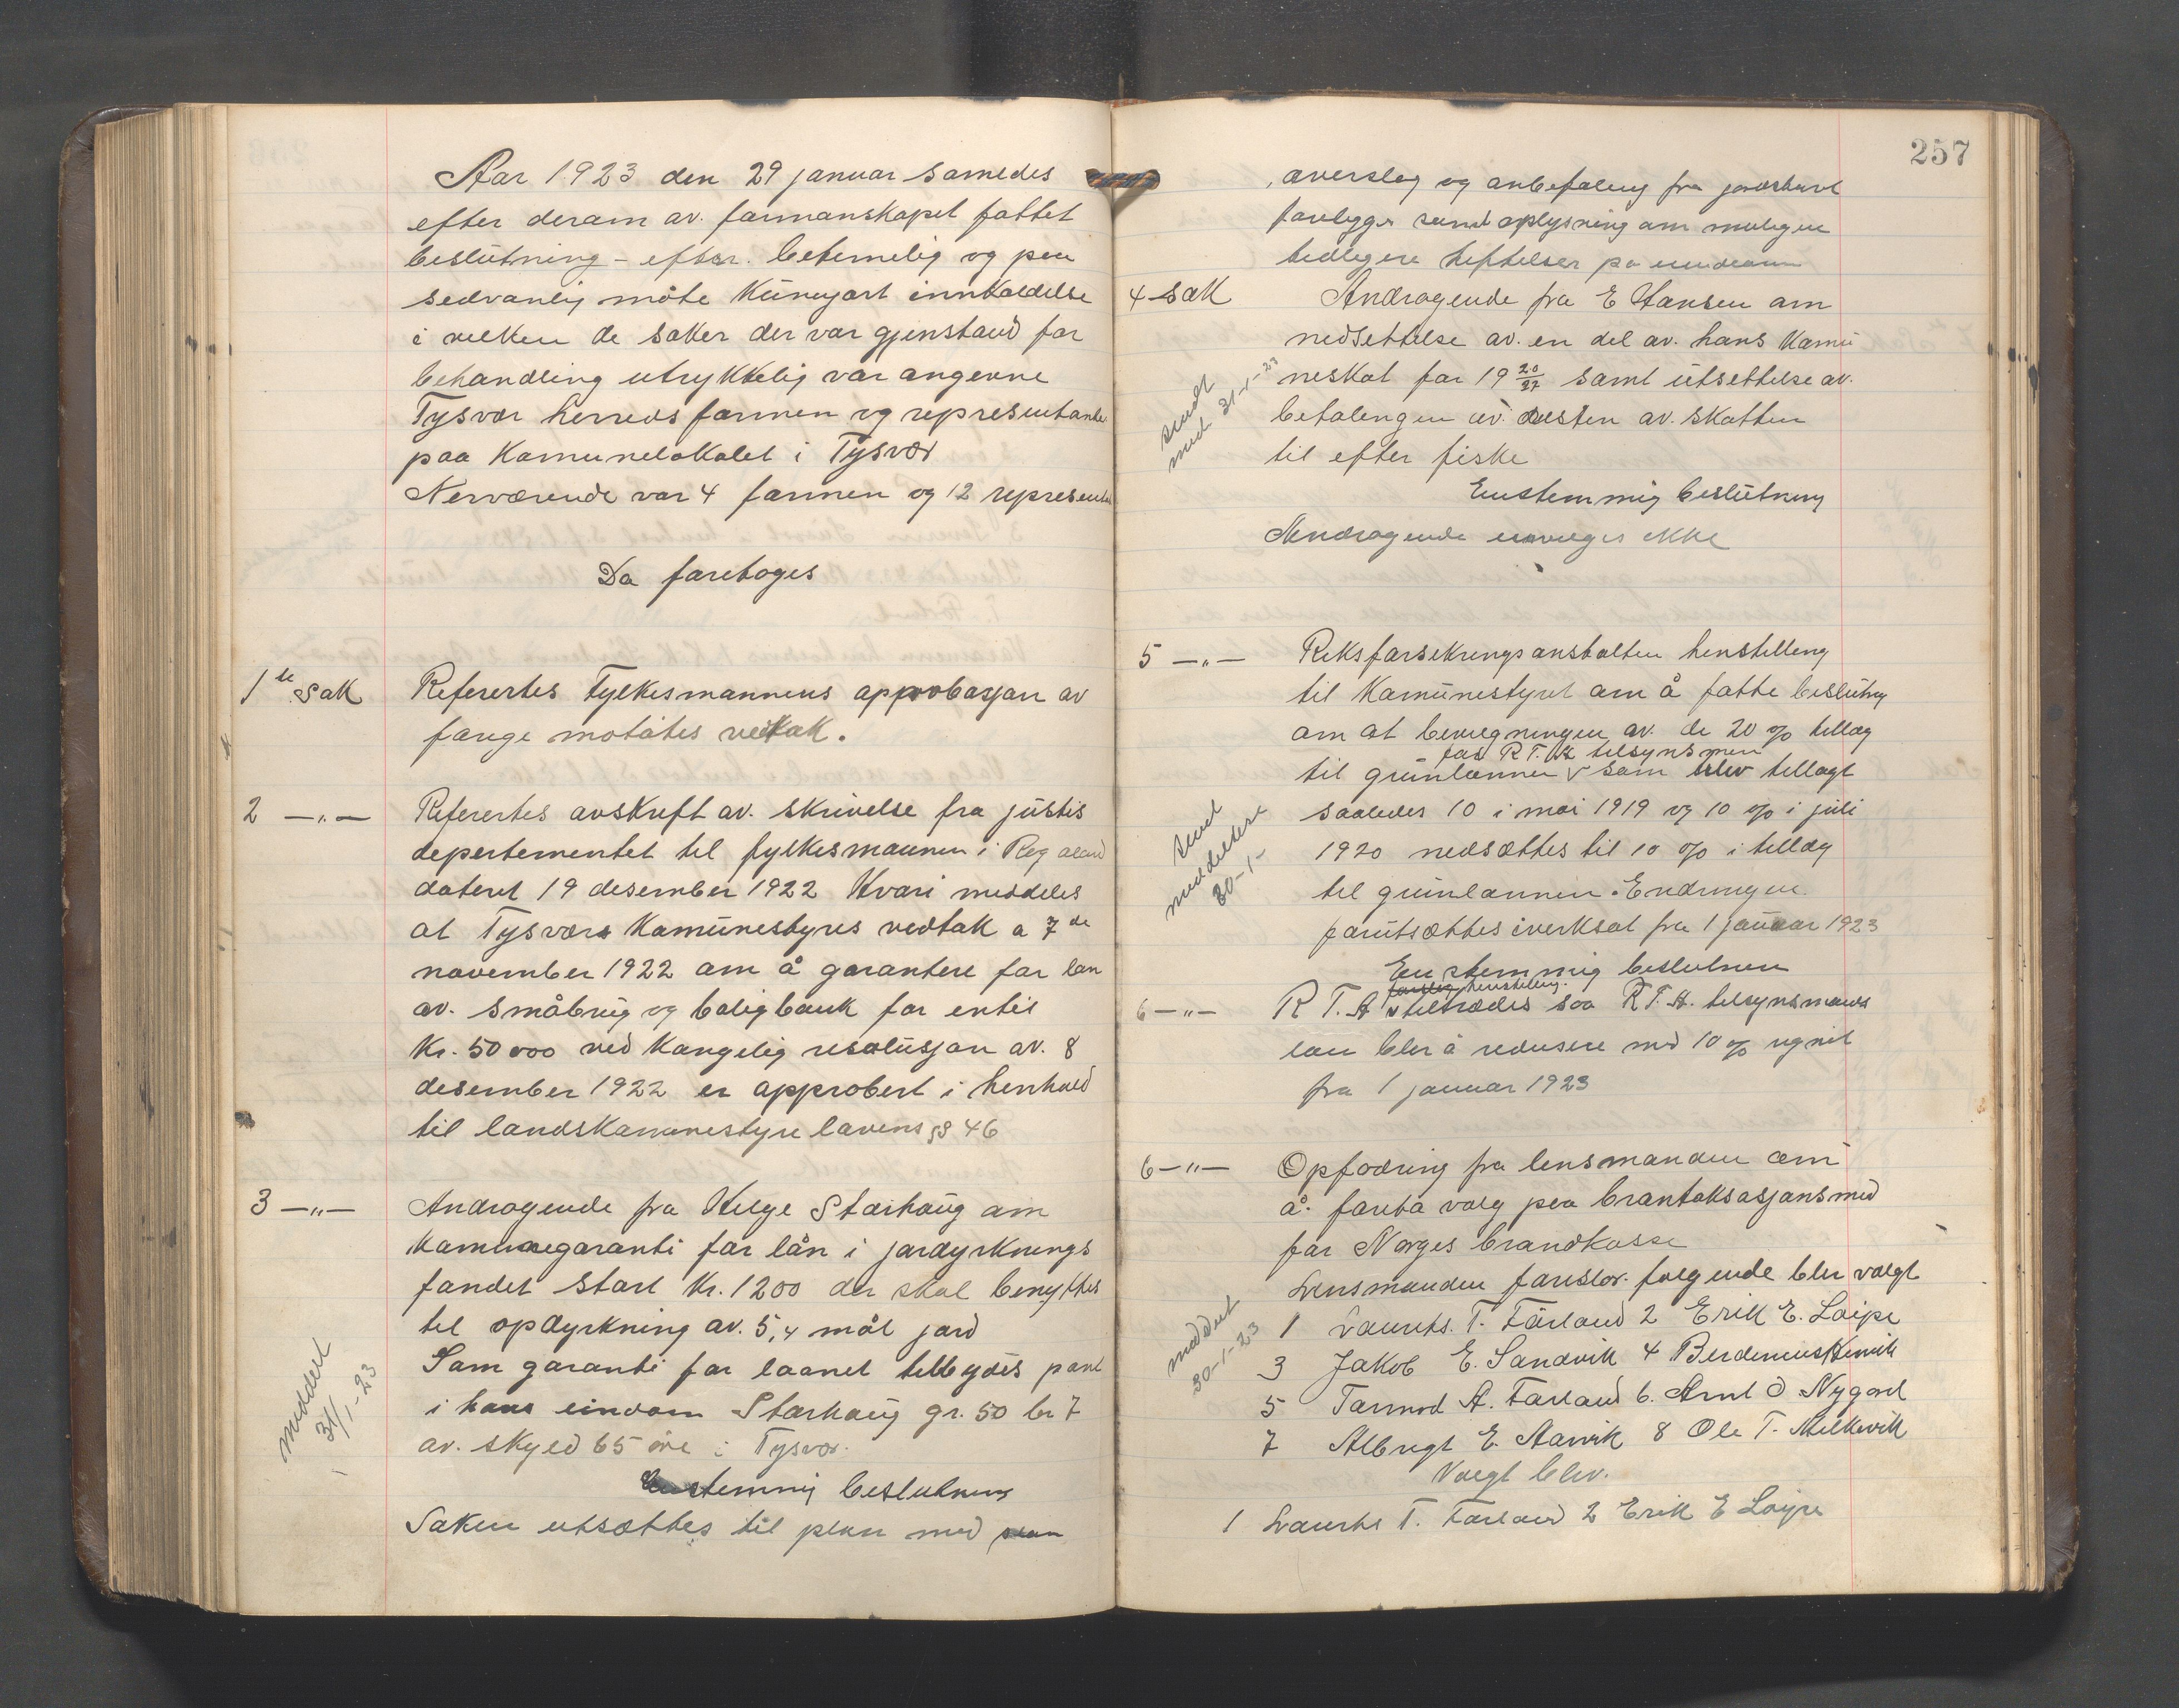 Aar 1923 den 29 januar samedes
efter deram av. formanskapet fattet
beslutning - efter. betimelig og paa
sedvanlig måte kungjort innkaldelse
i vilken de saker der var gjenstand for
behandling utrykkelig var angevne
Tysvær herreds formen og representanter
paa Komunelokalet i Tysvær
Nerværende var 4 formen og 12 represent
Da foretoges
1 te sak Refertes Fylkesmannens approbasjon av
farige motåtes vedtak.
2 —"— Refertes avskrift av. skrivelse fra justis
departementet til fylkesmannen i Rogaland
datert 19 desember 1922 Hvori meddeles
at Tysvær Komunestyres vedtak a 7 de
november 1922 om å garantere for lan
av. småbrug og boligbank for entil
Kr. 50000 ved Kongelig resolusjon av. 8
desember 1922 er approbert i henhold
til landskomunestyre lovens § 46
3 —"— Andragende fra Helge Stærhaug om
Komunegaranti for lån i jordyrknings
fondet stort Kr. 1200 der skal benyttes
til opdyrkning av. 5,4 mål jord
Som garanti for laanet tilbydes pant
i hans eindom Stærhaug gr. 50 br 7
av. skyld 65 øre i Tysvær.
meddelt
31/1-23
Enstemmig beslutning
Saken utsættes til plan med
257
averslag og anbefaling fra jordstyret
forelygger samt oplysning om muligen
tidligere heftelser på eindom
4 sak Andragende fra E Hansen om
nedsettelse av. en del av. hans Komu
neskat for 19 20/21 samt utsettelse av.
betalingen av. resten av. skatten
til efter fiske
sendt
med. 31-1-23
Enstemmig beslutning
Andragende innvilges ikke
5 —"— Riksforsikringsanstalten henstilling
til Komunestyret om å fatte beslutning
om at bevilgningen av. de 20 % tillæg
for R.T.A. tilsynsmen
til grunlønnen v som blev tillagt
saaledes 10 i mai 1919 og 10 % i juli
1920 nedsættes til 10 % i tillæg
til grunlønnen. Endringen
forutsættes iverksat fra 1 januar 1923
send
meddelelse
30-1-
Enstemmig beslutning
henstilling.
6 —"— R T. A v tiltrædes saa R T. A. tilsynsmands
løn blir å redusere med 10 % regnet
fra 1 januar 1923
6 —"— Opfodring fra lensmanden om
å. foreta valg paa brantaksasjonsmed
for Norges brandkasse
Lensmanden foreslor. følgende blir valgt
1 Laurits. T. Førland 2 Erik E. Loipe
3 Jakob E. Sandvik 4
5 Tormod A. Førland 6. Arnt O Nygord
7 Albregt E. Aarvik 8 Ole T. Milkevik
meddelt
30-1-23
Valgt blev.
1 Laurits T. Førland 2 Erik E Loipe